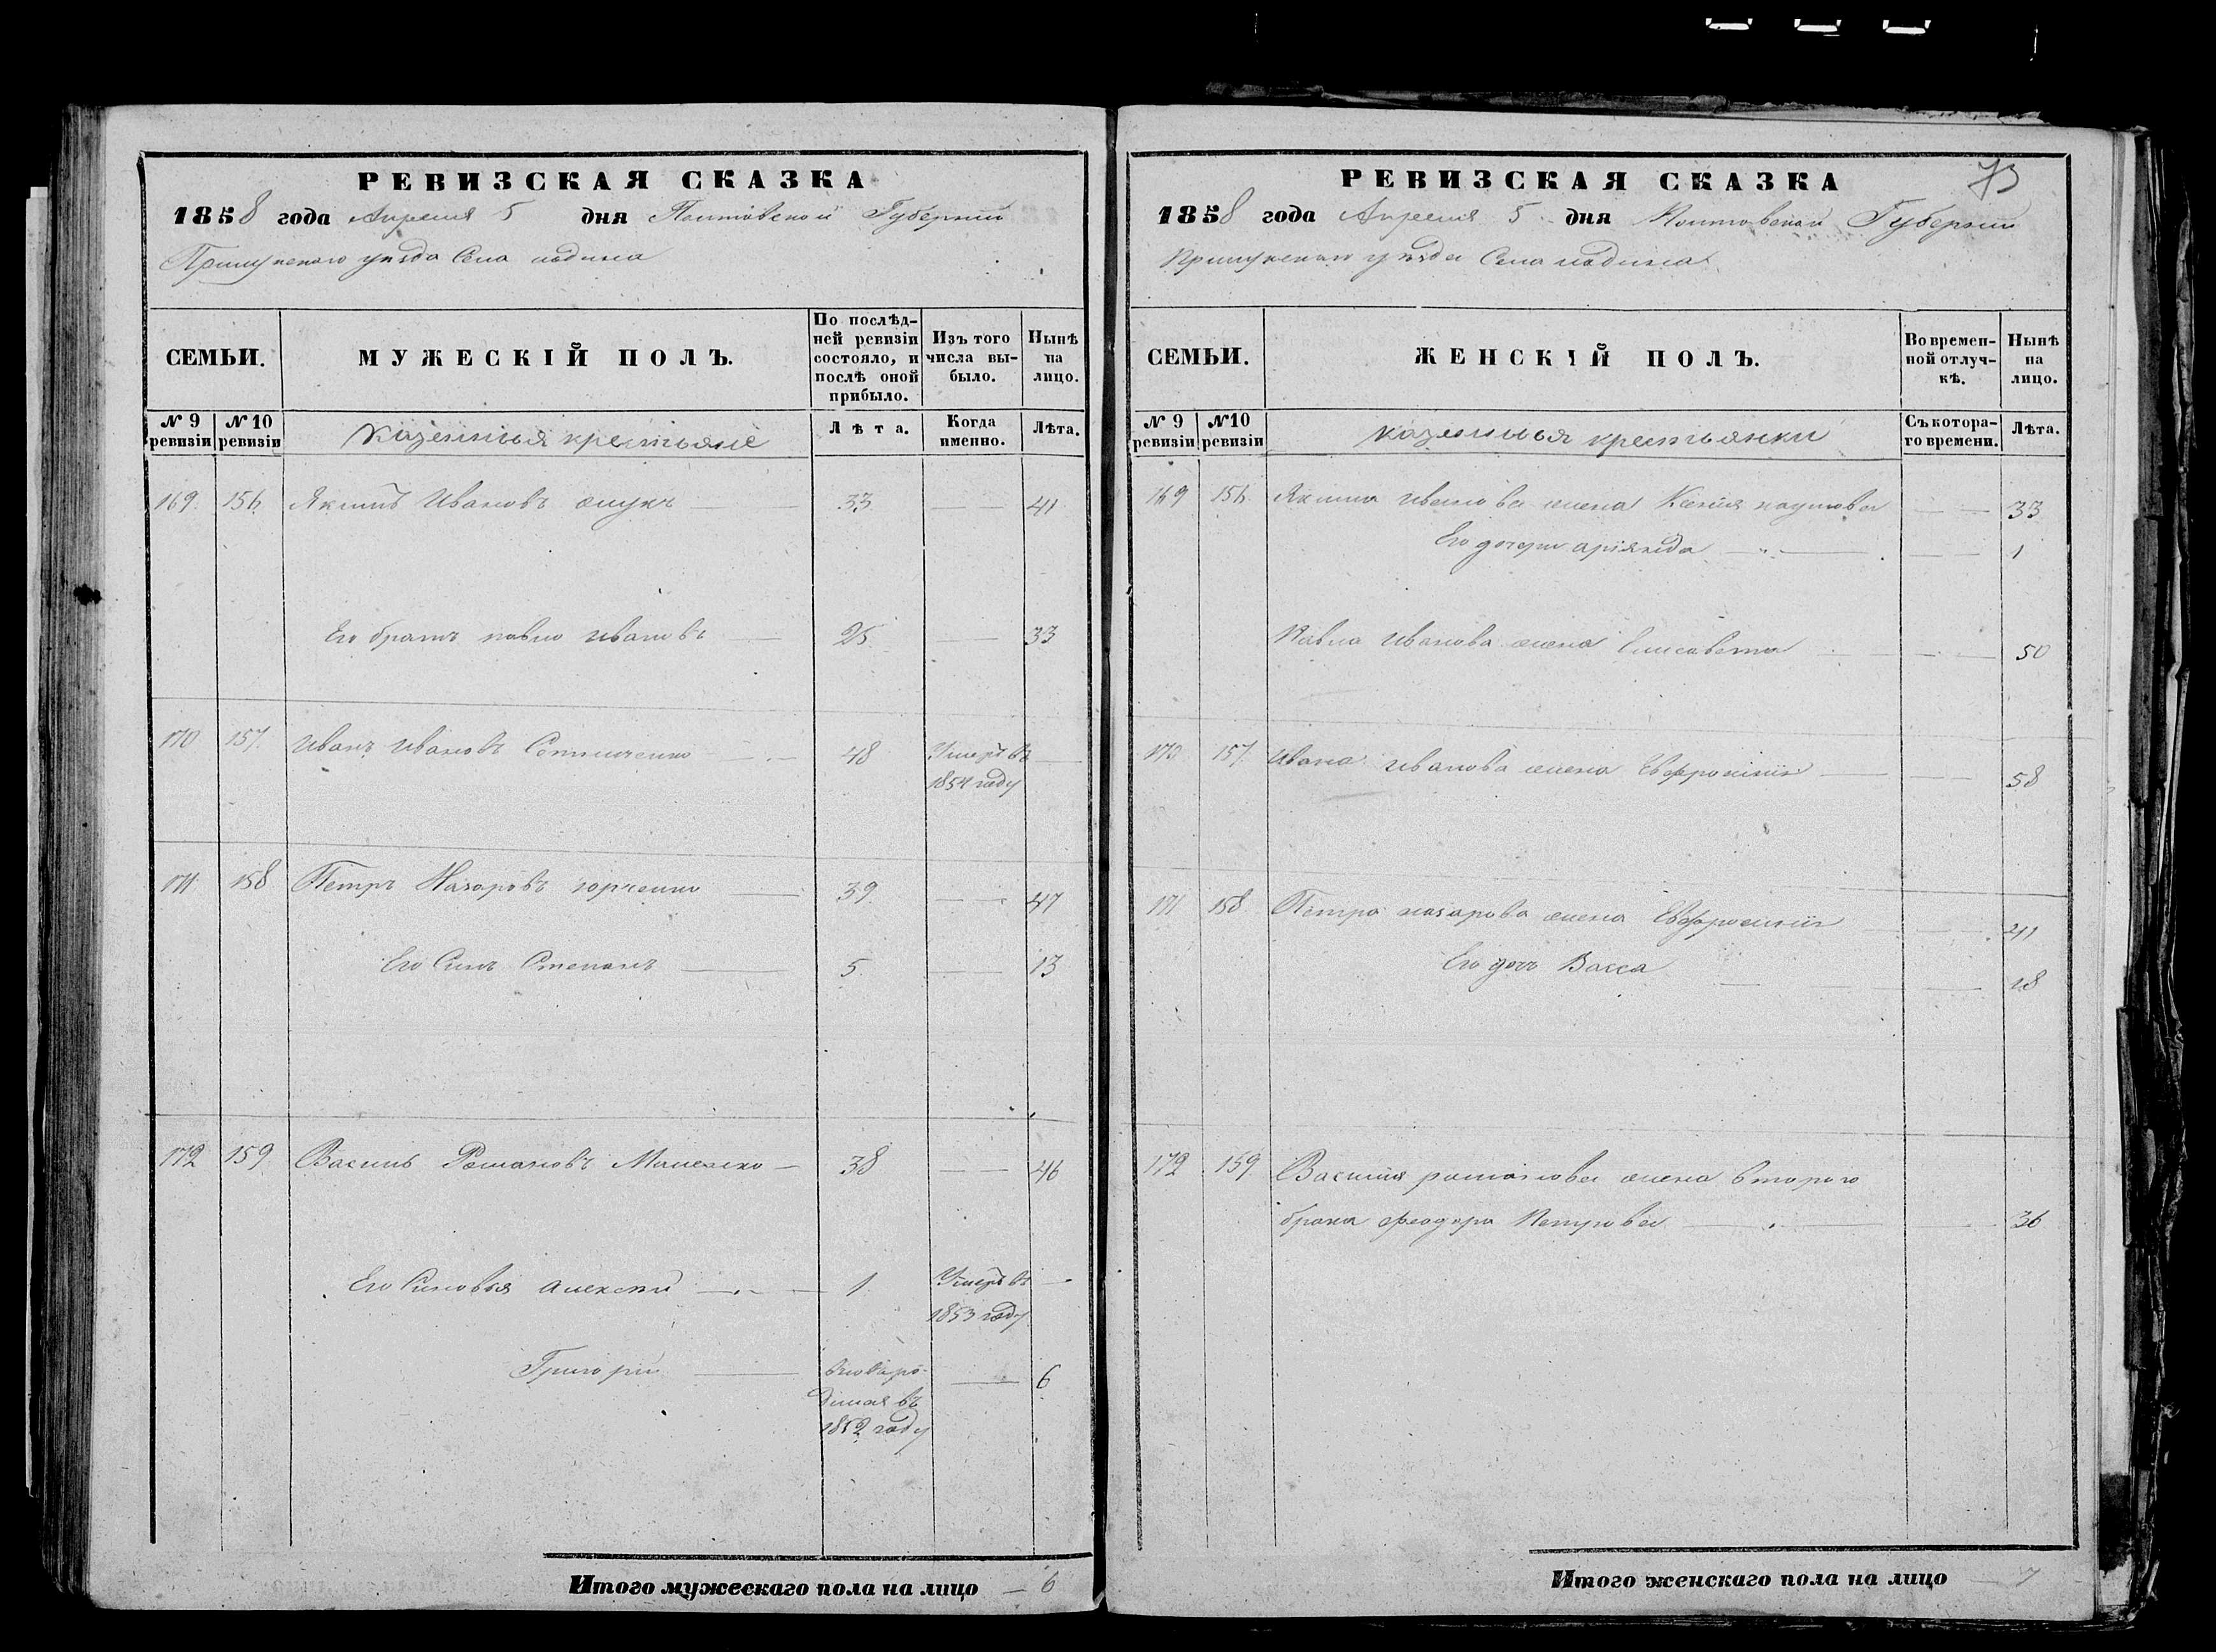 РЕВИЗСКАЯ СКАЗКА
1858 года Апреля 5 дня Полтавской Губернии
Прилуцкаго уѣзда Села
СЕМЬИ.
МУЖЕСКІЙ ПОЛЪ.
По послѣд-
ней ревизіи
состояло, и
послѣ оной
прибыло.
Изъ того
числа вы-
было.
Нынѣ
на
лицо.
№ 9
ревизіи
№ 10
ревизіи
Казенныя крестьяне
Лѣта.
Когда
именно.
Лѣта.
169. 156. Якимъ Ивановъ 33 41
Его братъ павло ивановъ 25. 33
170 157. Иванъ Ивановъ 48 Умеръ въ
1854 году
171. 158 Петръ Назаровъ юрченко 39. 47
Его Сынъ Степанъ 5. 13
172 159. Василь Романовъ 38 46
Его Сыновья алексѣй 1. Умеръ въ
1853 году
Григорій вновьро- 6
дился въ
1852 году
Итого мужескаго пола на лицо 6
73
РЕВИЗСКАЯ СКАЗКА
1858 года Апреля 5 дня Полтавской Губернии
Прилуцкаго уѣзда Села
СЕМЬИ.
ЖЕНСКІЙ ПОЛЪ.
Во времен-
ной отлуч-
кѣ.
Нынѣ
на
лицо.
№ 9
ревизіи
№10
ревизіи
казенныя крестьянки
Съ котора-
го времени.
Лѣта.
169 156. Якима иванова жена Ксенія наумова 33
Его дочери 1
Павла Иванова жена Елисавета 50
170 157. Ивана иванова жена Евфросинія 58
171 158 Петра назарова жена Евфросинія 41
Его дочь Васса 18
172 159. Василия романова жена втораго
брака феодора Петрова 36
Итого женскаго пола на лицо 7